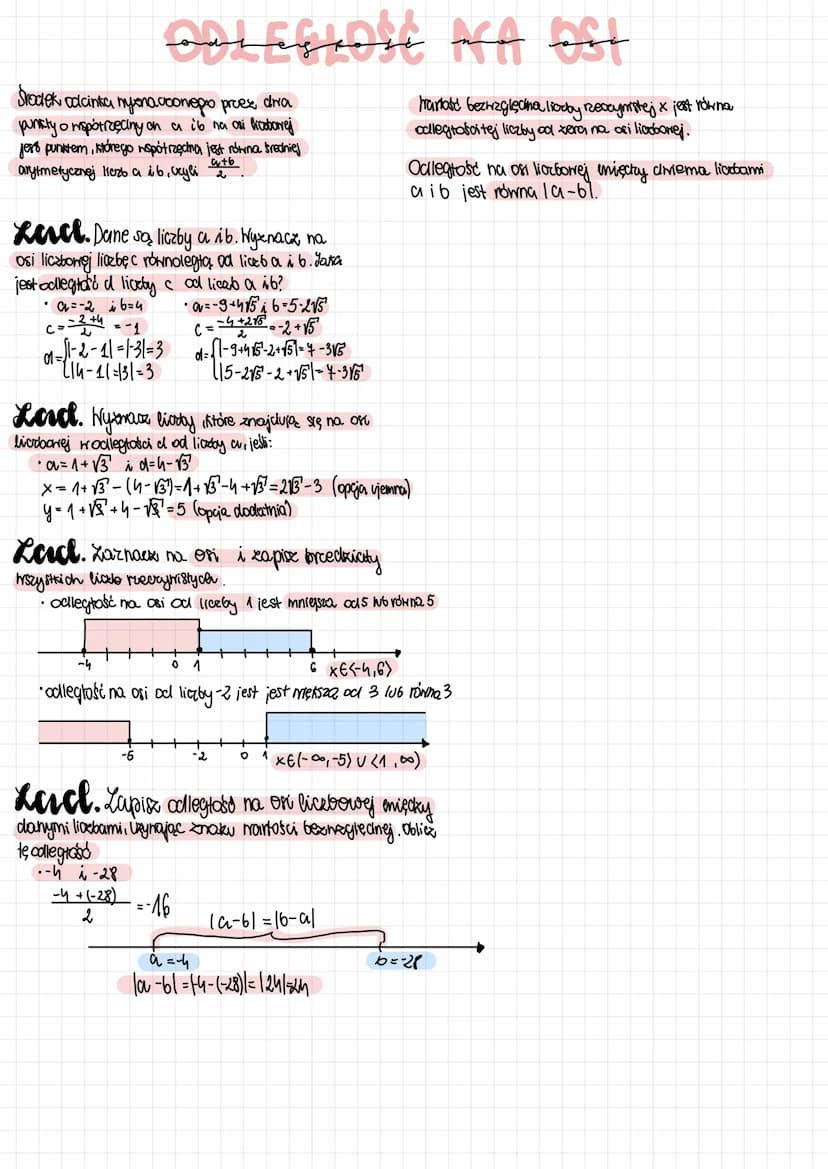 ODLEGŁOŚĆ NA OSI
odległość na osi
Środek odcinka wyznaczonego przez dwa
punkty o współrzędnych a i b na osi liczbowej
jest punktem, którego współrzędna jest równa średniej
arytmetycznej liczb a i b, czyli \frac{a+b}{2}.
Wartość bezwzględna liczby rzeczywistej x jest równa
odległości tej liczby od zera na osi liczbowej.
Odległość na osi liczbowej między dwiema liczbami
a i b jest równa |a-b|.
Zad. Dane są liczby a i b. Wyznacz na
osi liczbowej liczbę c równoległą od liczb a i b. Jaka
jest odległość d liczby c od liczb a i b?
· a=-2 i b=4
c=\frac{-2+4}{2}=-1
d={|-2-1|=|-3|=3
|4-1|=|3|=3
· a=-9+4√5 i b=5-2√5
c=\frac{-4+2√5}{2}=-2+√5
d={|-9+4√5-2+√5|=7-3√5
|5-2√5-2+√5|=7-3√5
Zad. Wyznacz liczby, które znajdują się na osi
liczbowej w odległości d od liczby a, jeśli:
· a=1+√3 i d=4-√3
x=1+√3-(4-√3)=1+√3-4+√3=2√3-3 (opcja ujemna)
y=1+√3+4-√3=5 (opcja dodatnia)
Zad. Zaznacz na osi i zapisz przedziały
wszystkich liczb rzeczywistych.
· odległość na osi od liczby 1 jest mniejsza od 5 lub równa 5
-4 0 1 6 x∈<-4,6>
· odległość na osi od liczby -2 jest jest większa od 3 lub równa 3
-5 -2 0 1 x∈(-∞,-5) ∪ <1,∞)
Zad. Zapisz odległość na osi liczbowej między
danymi liczbami, używając znaku wartości bezwzględnej. Oblicz
tę odległość
· -4 i -28
\frac{-4+(-28)}{2}=-16
|a-b|=|b-a|
a=-4 b=-28
|a-b|=|-4-(-28)|=|24|=24